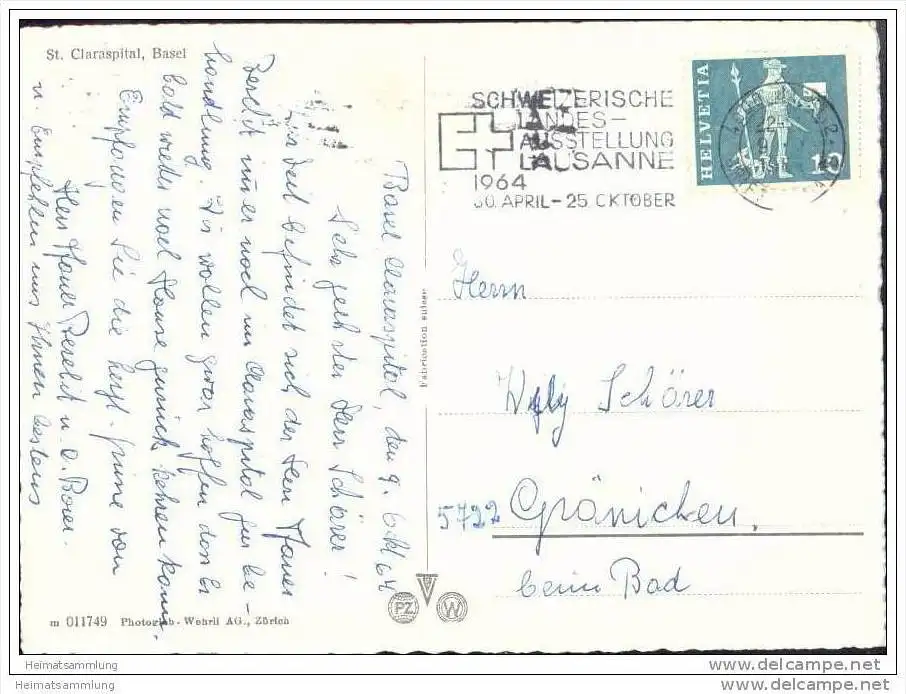 St. Claraspital, Basel
SCHWEIZERISCHE
LANDES-
AUSSTELLUNG
LAUSANNE
1964
30. APRIL - 25. CKTOBER
HELVETIA
10
Basel Claraspital, den 9. Okt 64
Sehr geehrter Herr Schörer!
Zur Zeit befindet sich der Herr
immer noch im Claraspital für be-
handlung. Wir wollen hoffen dass Er
bald wieder nach Hause zurück kehren kann.
Empfangen Sie die herzl. Grüsse von
Herr u.
u. Empfehlen uns Ihnen bestens
Fabrication suisse
Herrn
Willy Schörer
5722 Gränichen.
beim Bad
PZ
W
m 011749 Photoglob-Wehrli AG., Zürich
Heimatsammlung
Heimatsammlung
www.delcampe.net
www.delcampe.net